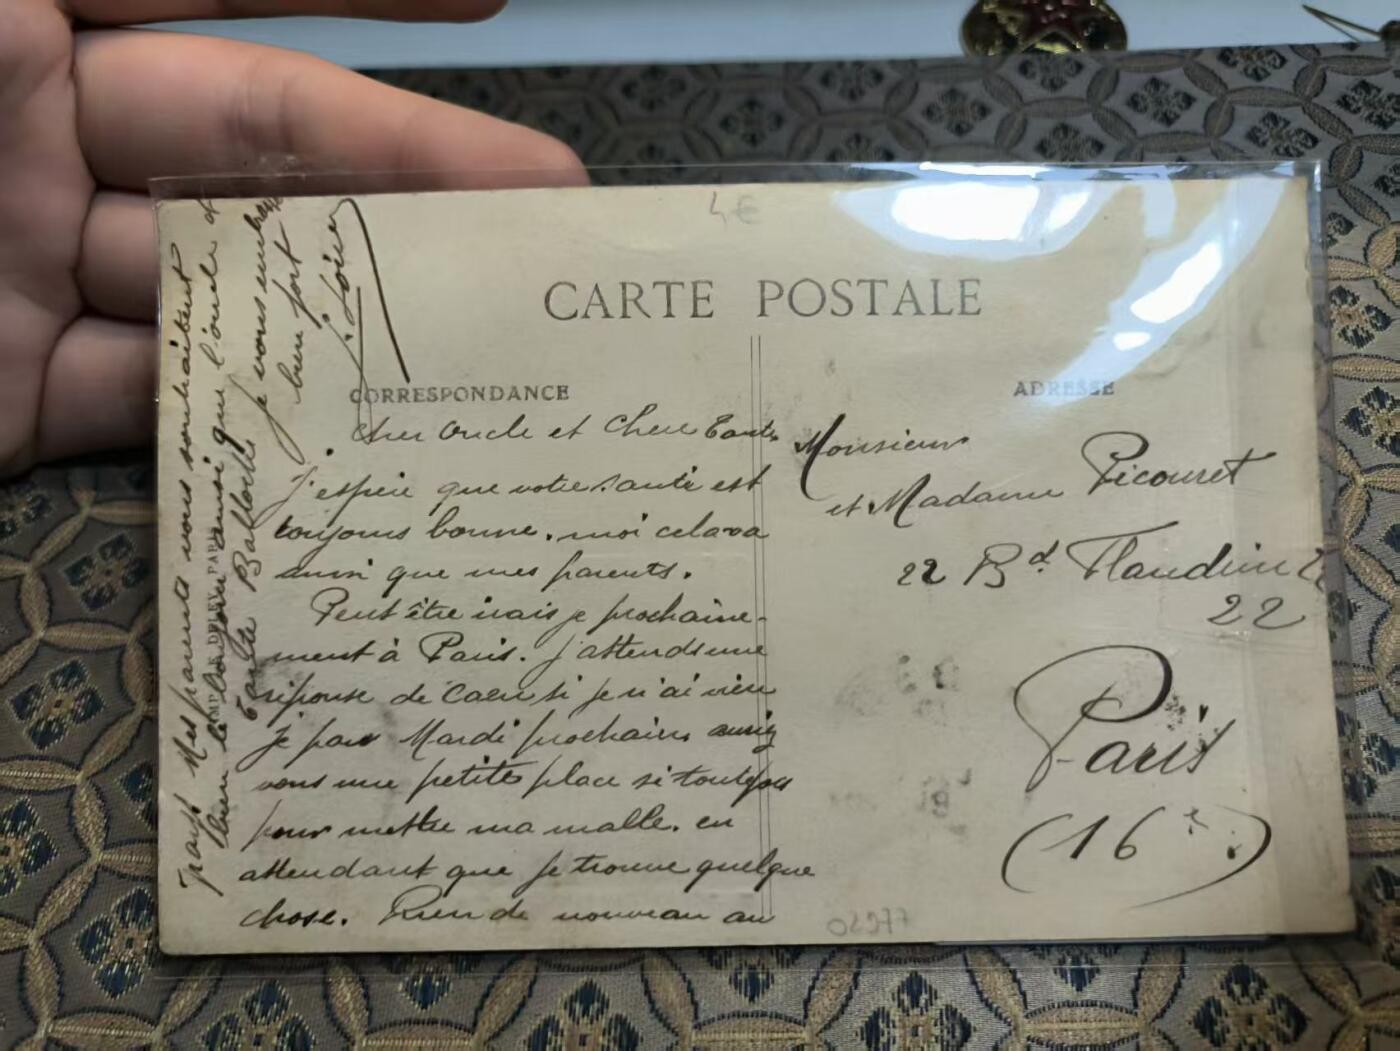 4€
CARTE POSTALE
CORRESPONDANCE
ADRESSE
Cher Oncle et Chere Tante
J'espère que votre santé est
toujours bonne. moi cela va
ainsi que mes parents.
Peut être irais je prochaine-
ment à Paris. J'attends une
réponse de Caen si je n'ai rien
je pars Mardi prochain auriez
vous une petite place si toutefois
pour mettre ma malle. en
attendant que je trouve quelque
chose. Rien de nouveau au
pays Mes parents vous souhaitent
bien le bonjour ainsi que l'oncle et
tante
je vous embrasse
bien fort
Monsieur
et Madame Picouret
22 Bd Flandrin 22
22
Paris
(16e)
IMP. DELEY PARIS
02977